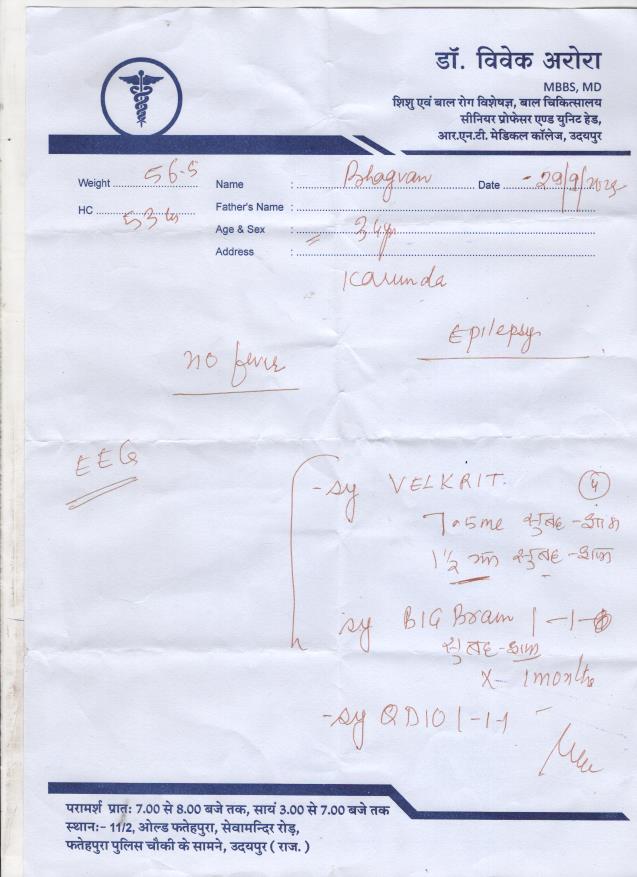 डॉ. विवेक अरोरा
MBBS, MD
शिशु एवं बाल रोग विशेषज्ञ, बाल चिकित्सालय
सीनियर प्रोफेसर एण्ड यूनिट हेड,
आर.एन.टी. मेडिकल कॉलेज, उदयपुर
Weight 56.5 Name : Bhagvan Date 29/9/2023
HC 53 Father's Name :
Age & Sex :
Address :
Karunda
Epilepsy
no fever
EEG
-sy VELKRIT. 4
सुबह-शाम
1 1/2 सुबह-शाम
sy BIG Brain 1-1-
सुबह-शाम
x- 1 months
-sy QD10 1-1-1
परामर्श प्रातः 7.00 से 8.00 बजे तक, सायं 3.00 से 7.00 बजे तक
स्थान:- 11/2, ओल्ड फतेहपुरा, सेवामन्दिर रोड़,
फतेहपुरा पुलिस चौकी के सामने, उदयपुर ( राज. )